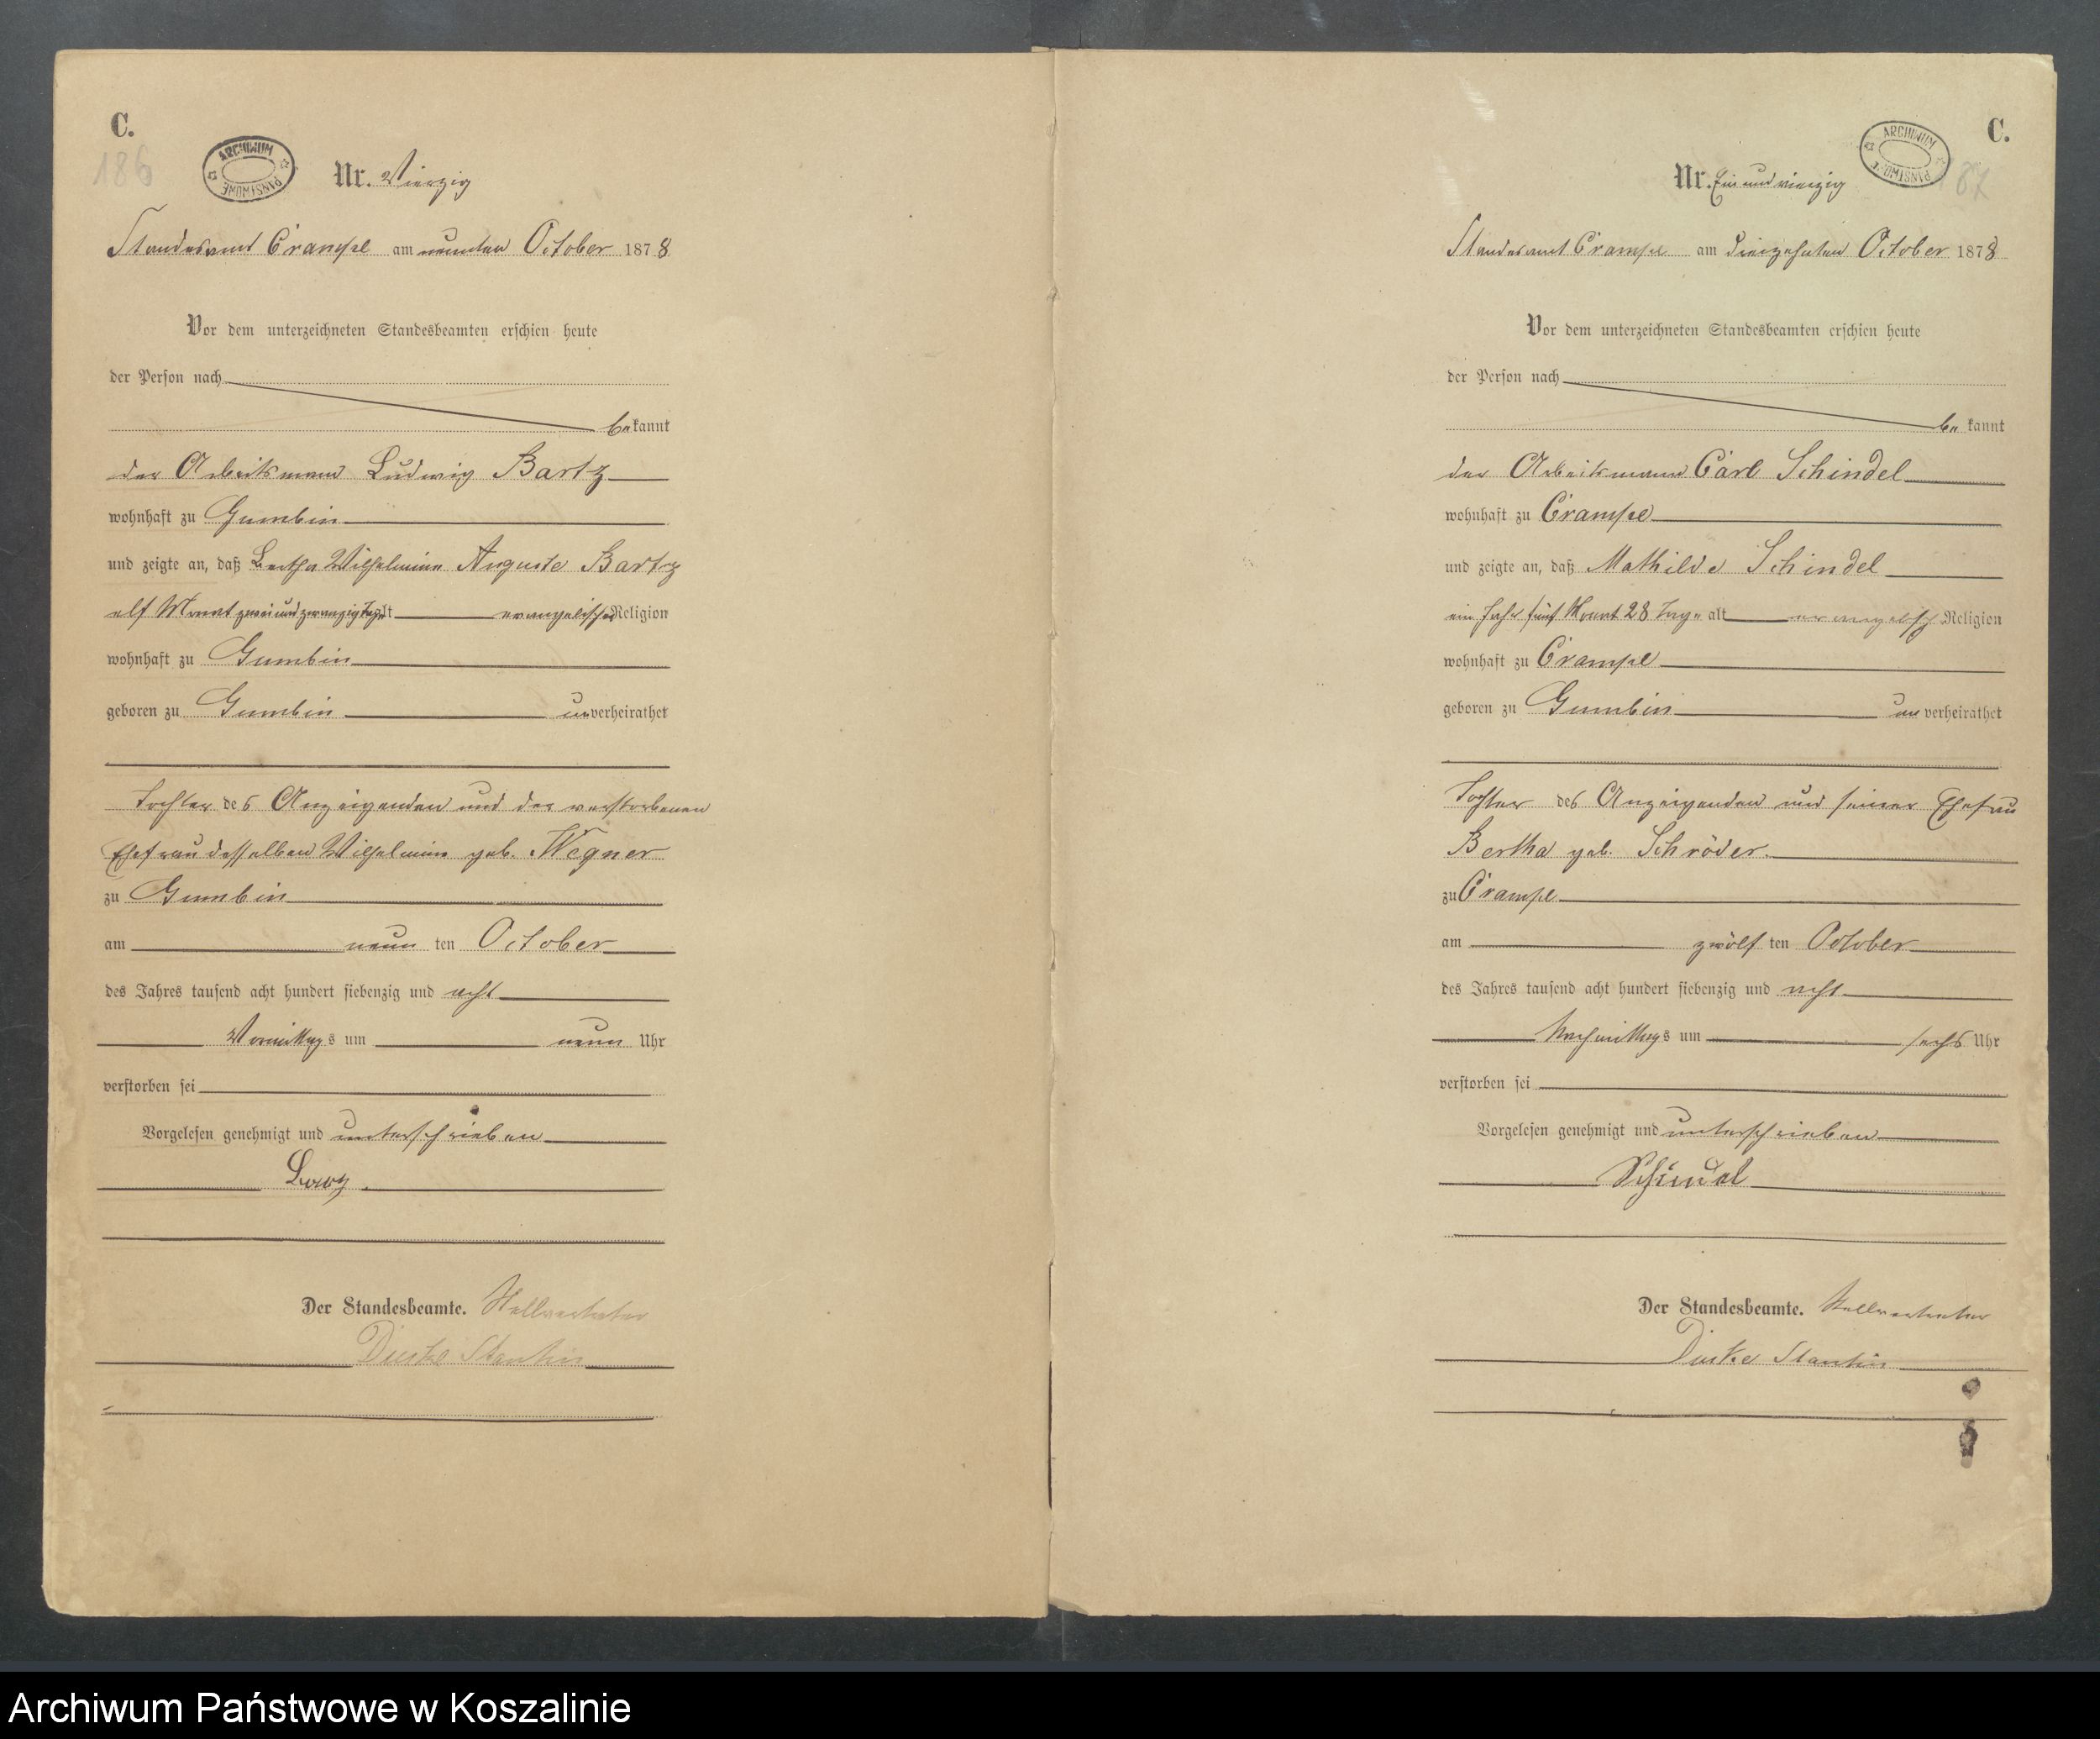 C.
186
ARCHIWUM PAŃSTWOWE
Nr. Vierzig
Standesamt Crampe am neunten October 1878
Vor dem unterzeichneten Standesbeamten erschien heute
der Person nach
bekannt
der Arbeitsmann Ludwig Bartz
wohnhaft zu Gumbin
und zeigte an, daß Bertha Wilhelmine Auguste Bartz
elf Monat zwei und zwanzig Tage alt evangelischer Religion
wohnhaft zu Gumbin
geboren zu Gumbin unverheirathet
Tochter des Anzeigenden und der verstorbenen
Ehefrau desselben Wilhelmine geb. Wegner
zu Gumbin
am neun ten October
des Jahres tausend acht hundert siebenzig und acht
Vormittags um neun Uhr
verstorben sei
Vorgelesen genehmigt und unterschrieben
Der Standesbeamte. Stellvertreter
C.
87
ARCHIWUM PAŃSTWOWE
Nr. Ein und vierzig
Standesamt Crampe am vierzehnten October 1878
Vor dem unterzeichneten Standesbeamten erschien heute
der Person nach
be kannt
der Arbeitsmann Carl Schindel
wohnhaft zu Crampe
und zeigte an, daß Mathilde Schindel
ein Jahr fünf Monat 28 Tage alt evangelisch Religion
wohnhaft zu Crampe
geboren zu Gumbin un verheirathet
Tochter des Anzeigenden und seiner Ehefrau
Bertha geb. Schröder.
zu Crampe
am zwölf ten October
des Jahres tausend acht hundert siebenzig und acht
Nachmittags um sechs Uhr
verstorben sei
Vorgelesen genehmigt und unterschrieben
Schindel
Der Standesbeamte. Stellvertreter
Archiwum Państwowe w Koszalinie